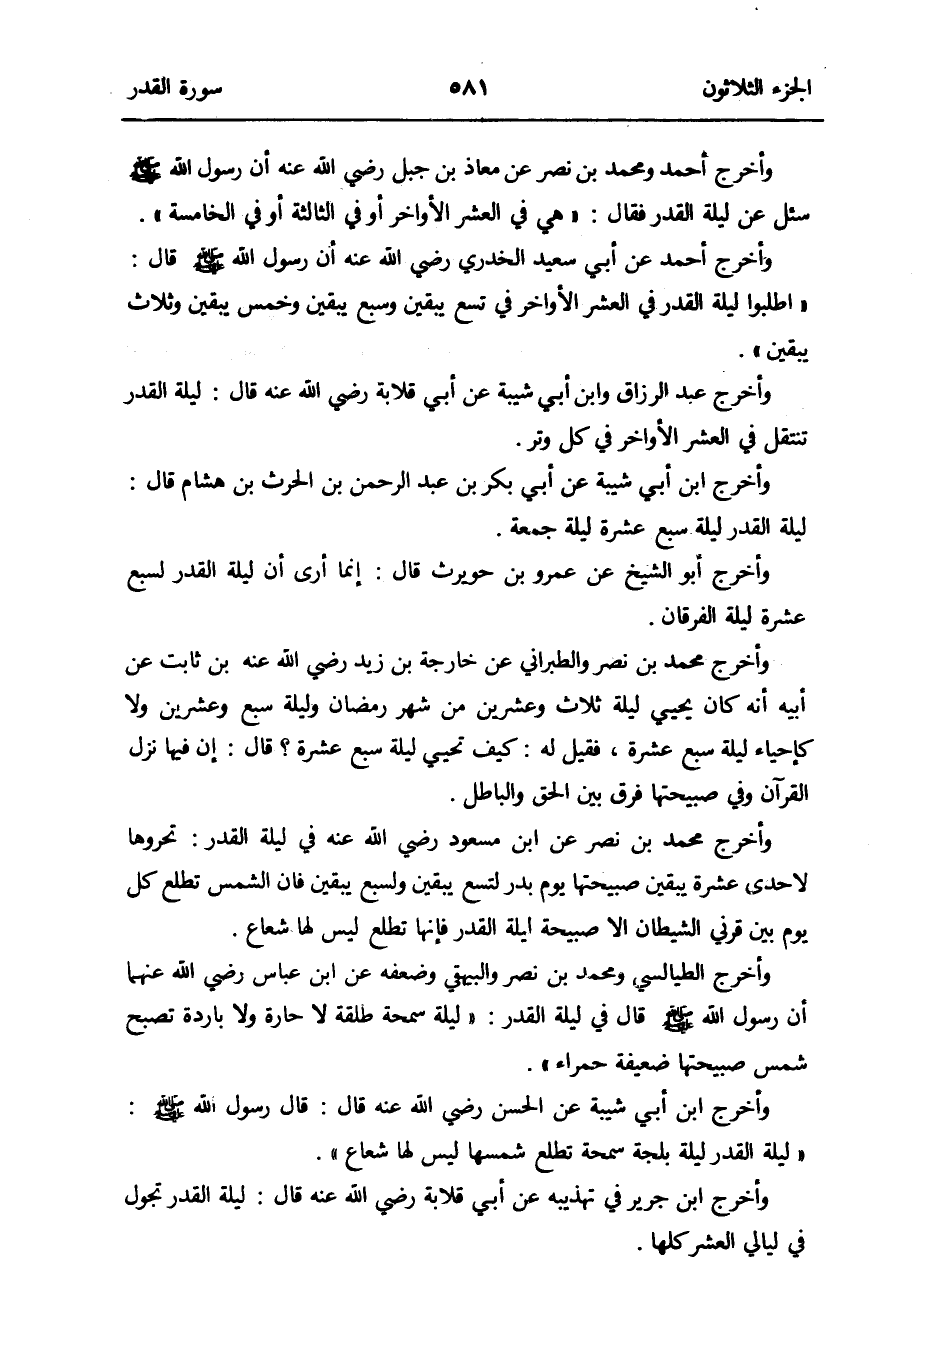 الجزء الثلاثون ٥٨١ سورة القدر
وأخرج أحمد ومحمد بن نصر عن معاذ بن جبل رضي الله عنه أن رسول الله ﷺ
سئل عن ليلة القدر فقال : « هي في العشر الأواخر أو في الثالثة أو في الخامسة » .
وأخرج أحمد عن أبي سعيد الخدري رضي الله عنه أن رسول الله ﷺ قال :
« اطلبوا ليلة القدر في العشر الأواخر في تسع يبقين وسبع يبقين وخمس يبقين وثلاث
يبقين » .
وأخرج عبد الرزاق وابن أبي شيبة عن أبي قلابة رضي الله عنه قال : ليلة القدر
تنتقل في العشر الأواخر في كل وتر .
وأخرج ابن أبي شيبة عن أبي بكر بن عبد الرحمن بن الحرث بن هشام قال :
ليلة القدر ليلة سبع عشرة ليلة جمعة .
وأخرج أبو الشيخ عن عمرو بن حويرث قال : إنما أرى أن ليلة القدر لسبع
عشرة ليلة الفرقان .
وأخرج محمد بن نصر والطبراني عن خارجة بن زيد رضي الله عنه بن ثابت عن
أبيه أنه كان يحيي ليلة ثلاث وعشرين من شهر رمضان وليلة سبع وعشرين ولا
كإحياء ليلة سبع عشرة ، فقيل له : كيف تحيي ليلة سبع عشرة ؟ قال : إن فيها نزل
القرآن وفي صبيحتها فرق بين الحق والباطل .
وأخرج محمد بن نصر عن ابن مسعود رضي الله عنه في ليلة القدر : تحروها
لاحدى عشرة يبقين صبيحتها يوم بدر لتسع يبقين ولسبع يبقين فان الشمس تطلع كل
يوم بين قرني الشيطان الا صبيحة ايلة القدر فإنها تطلع ليس لها شعاع .
وأخرج الطيالسي ومحمد بن نصر والبيهقي وضعفه عن ابن عباس رضي الله عنهما
أن رسول الله ﷺ قال في ليلة القدر : « ليلة سمحة طلقة لا حارة ولا باردة تصبح
شمس صبيحتها ضعيفة حمراء » .
وأخرج ابن أبي شيبة عن الحسن رضي الله عنه قال : قال رسول الله ﷺ :
« ليلة القدر ليلة بلجة سمحة تطلع شمسها ليس لها شعاع » .
وأخرج ابن جرير في تهذيبه عن أبي قلابة رضي الله عنه قال : ليلة القدر تجول
في ليالي العشر كلها .